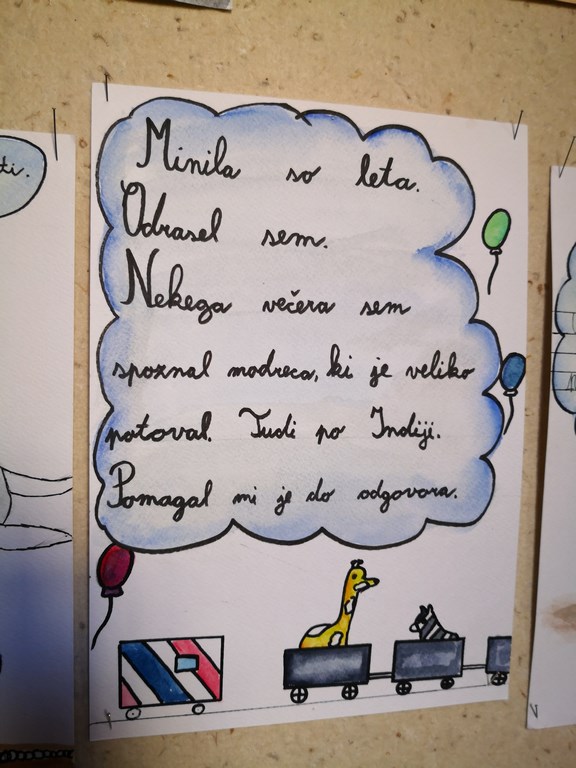 ti.
Minila so leta.
Odrasel sem.
Nekega večera sem
spoznal modreca, ki je veliko
potoval. Tudi po Indiji.
Pomagal mi je do odgovora.